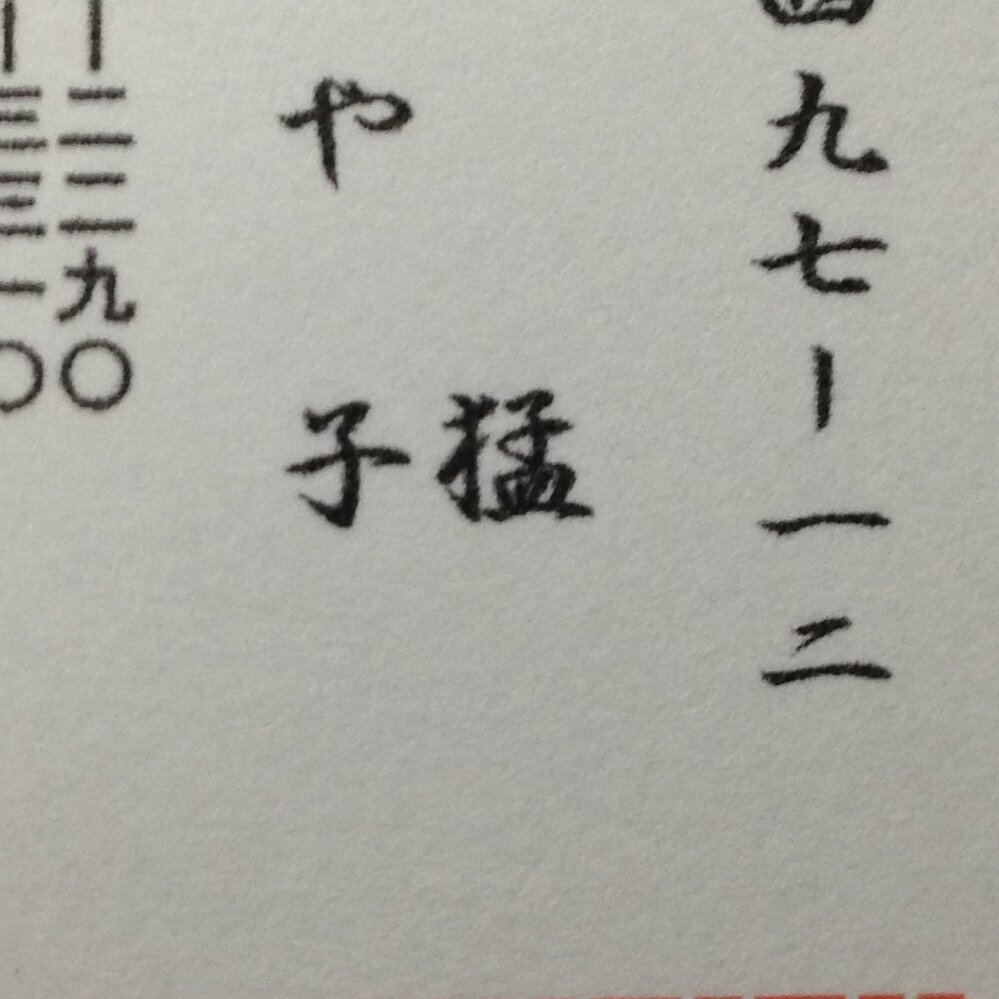 四九七ー一二
猛
や子
ー二二九〇
ー三三一〇